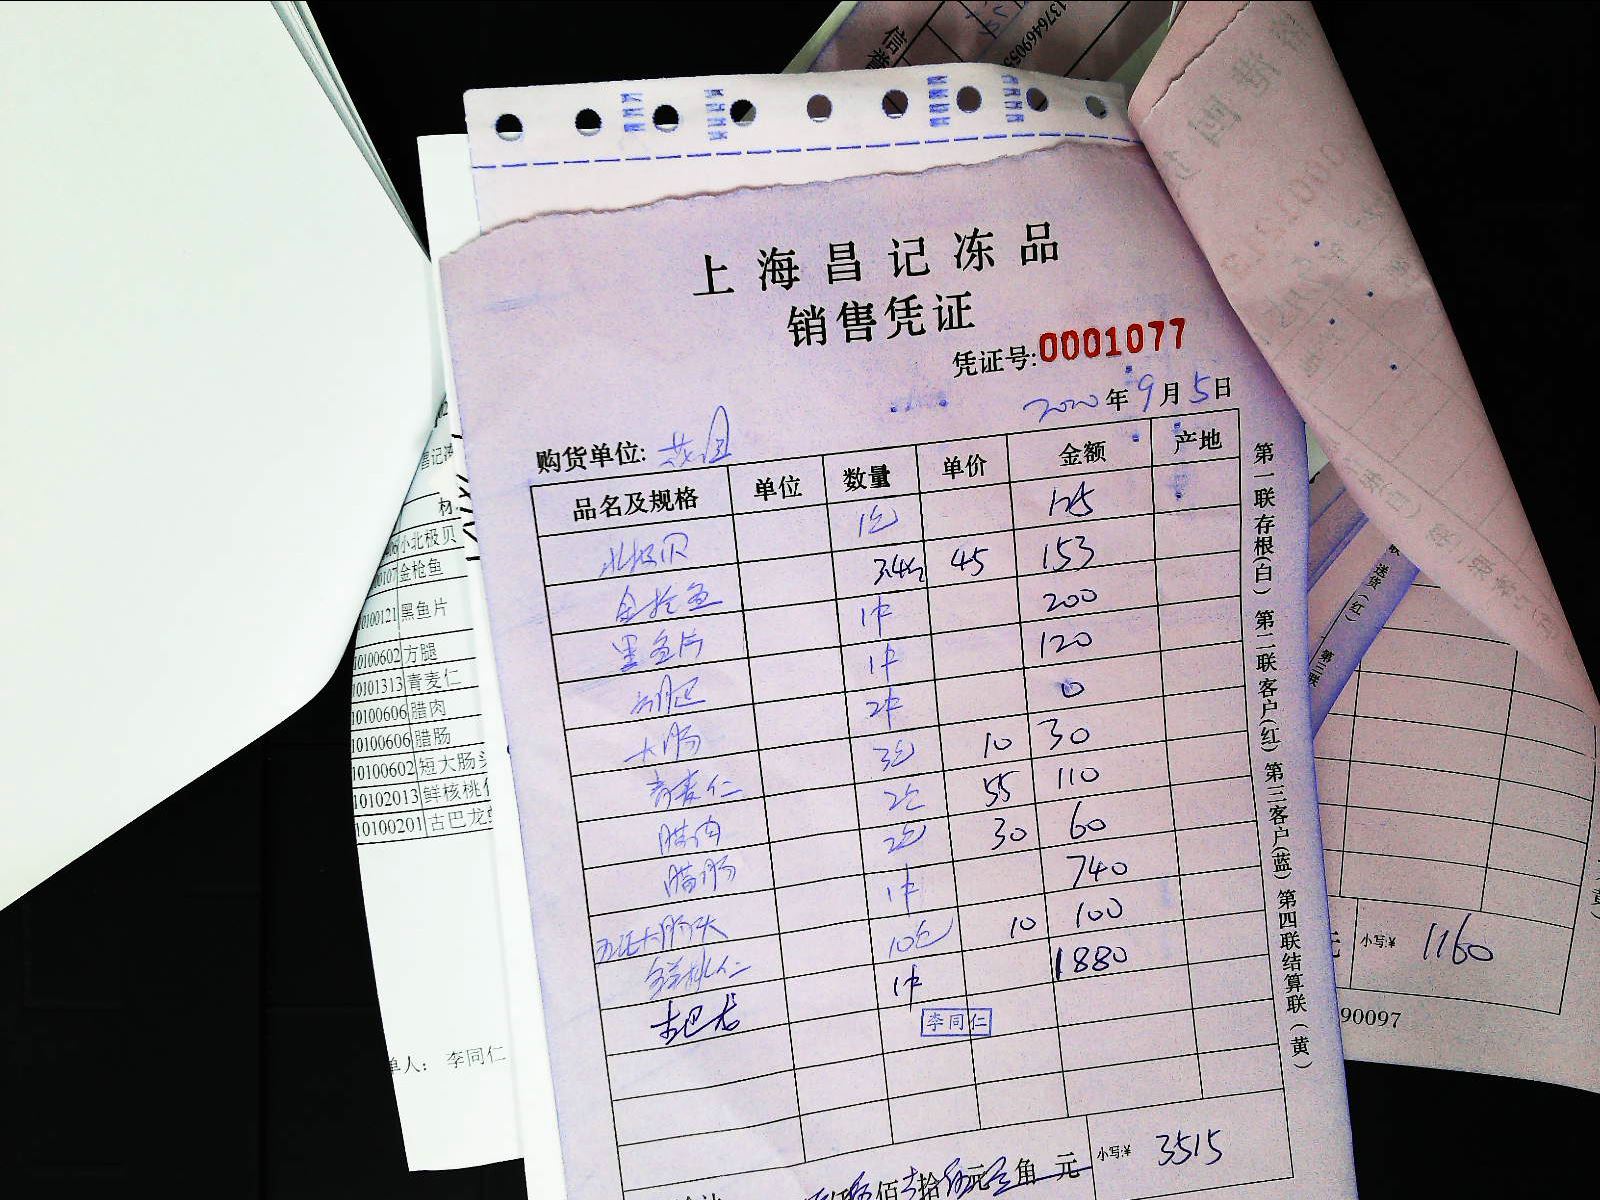 上海昌记冻品
销售凭证
凭证号:0001077
2020年9月5日
购货单位:
品名及规格 单位 数量 单价 金额 产地
北极贝 1包 125
金枪鱼 3.4 45 153
黑鱼片 1件 200
1件 120
大肠 2件 0
青麦仁 3包 10 30
腊肉 2包 55 110
腊肠 2包 30 60
大肠头 1件 740
鲜桃仁 10包 10 100
古巴龙 1件 1880
李同仁
佰 拾 元 角 元 小写:¥ 3515
第一联存根(白) 第二联客户(红) 第三客户(蓝) 第四联结算联(黄)
小北极贝
金枪鱼
10100121 黑鱼片
10100602 方腿
10101313 青麦仁
10100606 腊肉
10100606 腊肠
10100602 短大肠头
10102013 鲜核桃仁
10100201 古巴龙
单人: 李同仁
送货(红)
第三联
小写:¥ 1160
90097